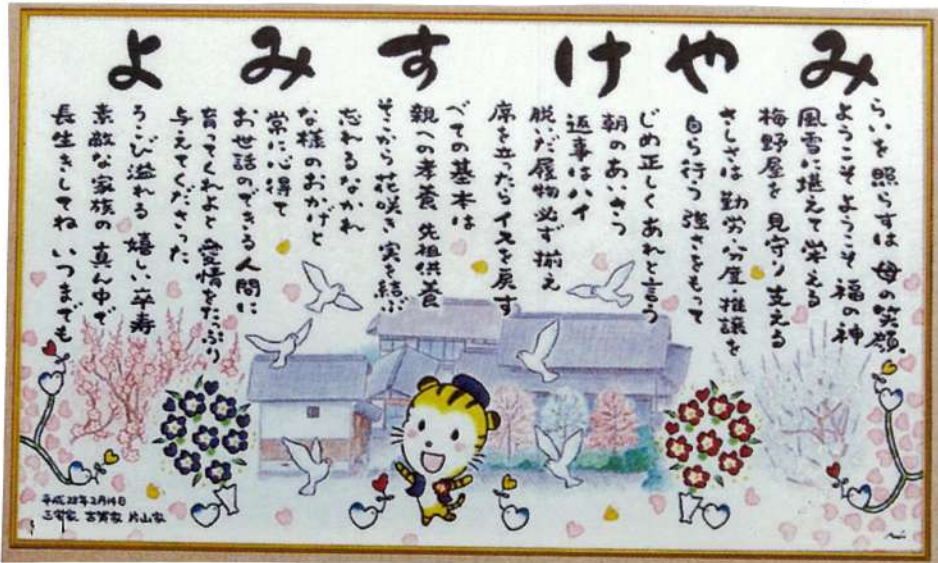 みやけすみよ
らいを照らすは 母の笑顔
ようこそようこそ 福の神
風雪に堪えて栄える
梅野屋を見守り支える
さしさは 勤労・分度・推譲を
自ら行う 強さをもって
じめ正しくあれと言う
朝のあいさつ
返事はハイ
脱いだ履物必ず揃え
席を立ったらイスを戻す
べての基本は
親への孝養 先祖供養
そこから花咲き 実を結ぶ
忘れるなかれ
な様のおかげと
常に心得て
お世話のできる人間に
育ってくれよと 愛情をたっぷり
与えてくださった
ろこび溢れる 嬉しい卒寿
素敵な家族の 真ん中で
長生きしてね いつまでも
平成28年2月14日
三宅家 古賀家 片山家